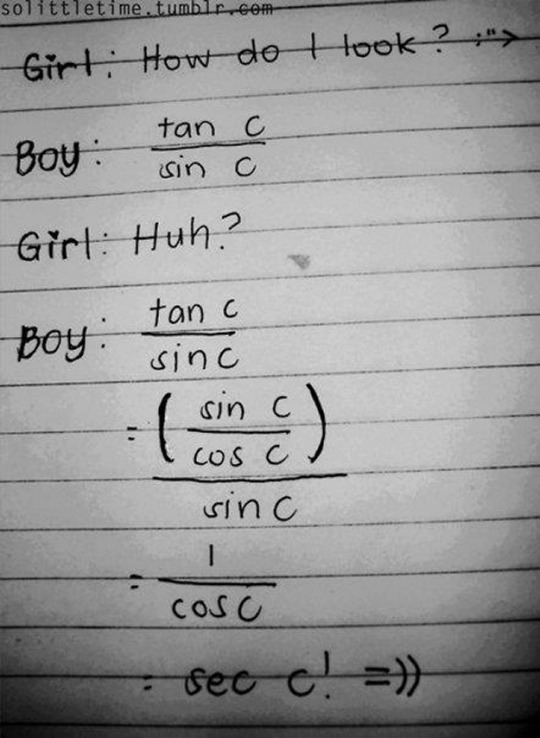 solittletime.tumblr.com
Girl: How do I look? ;">
Boy: tan C
sin C
Girl: Huh?
Boy: tan C
sin C
= ( sin C
cos C )
sin C
= 1
cos C
= sec c! =))